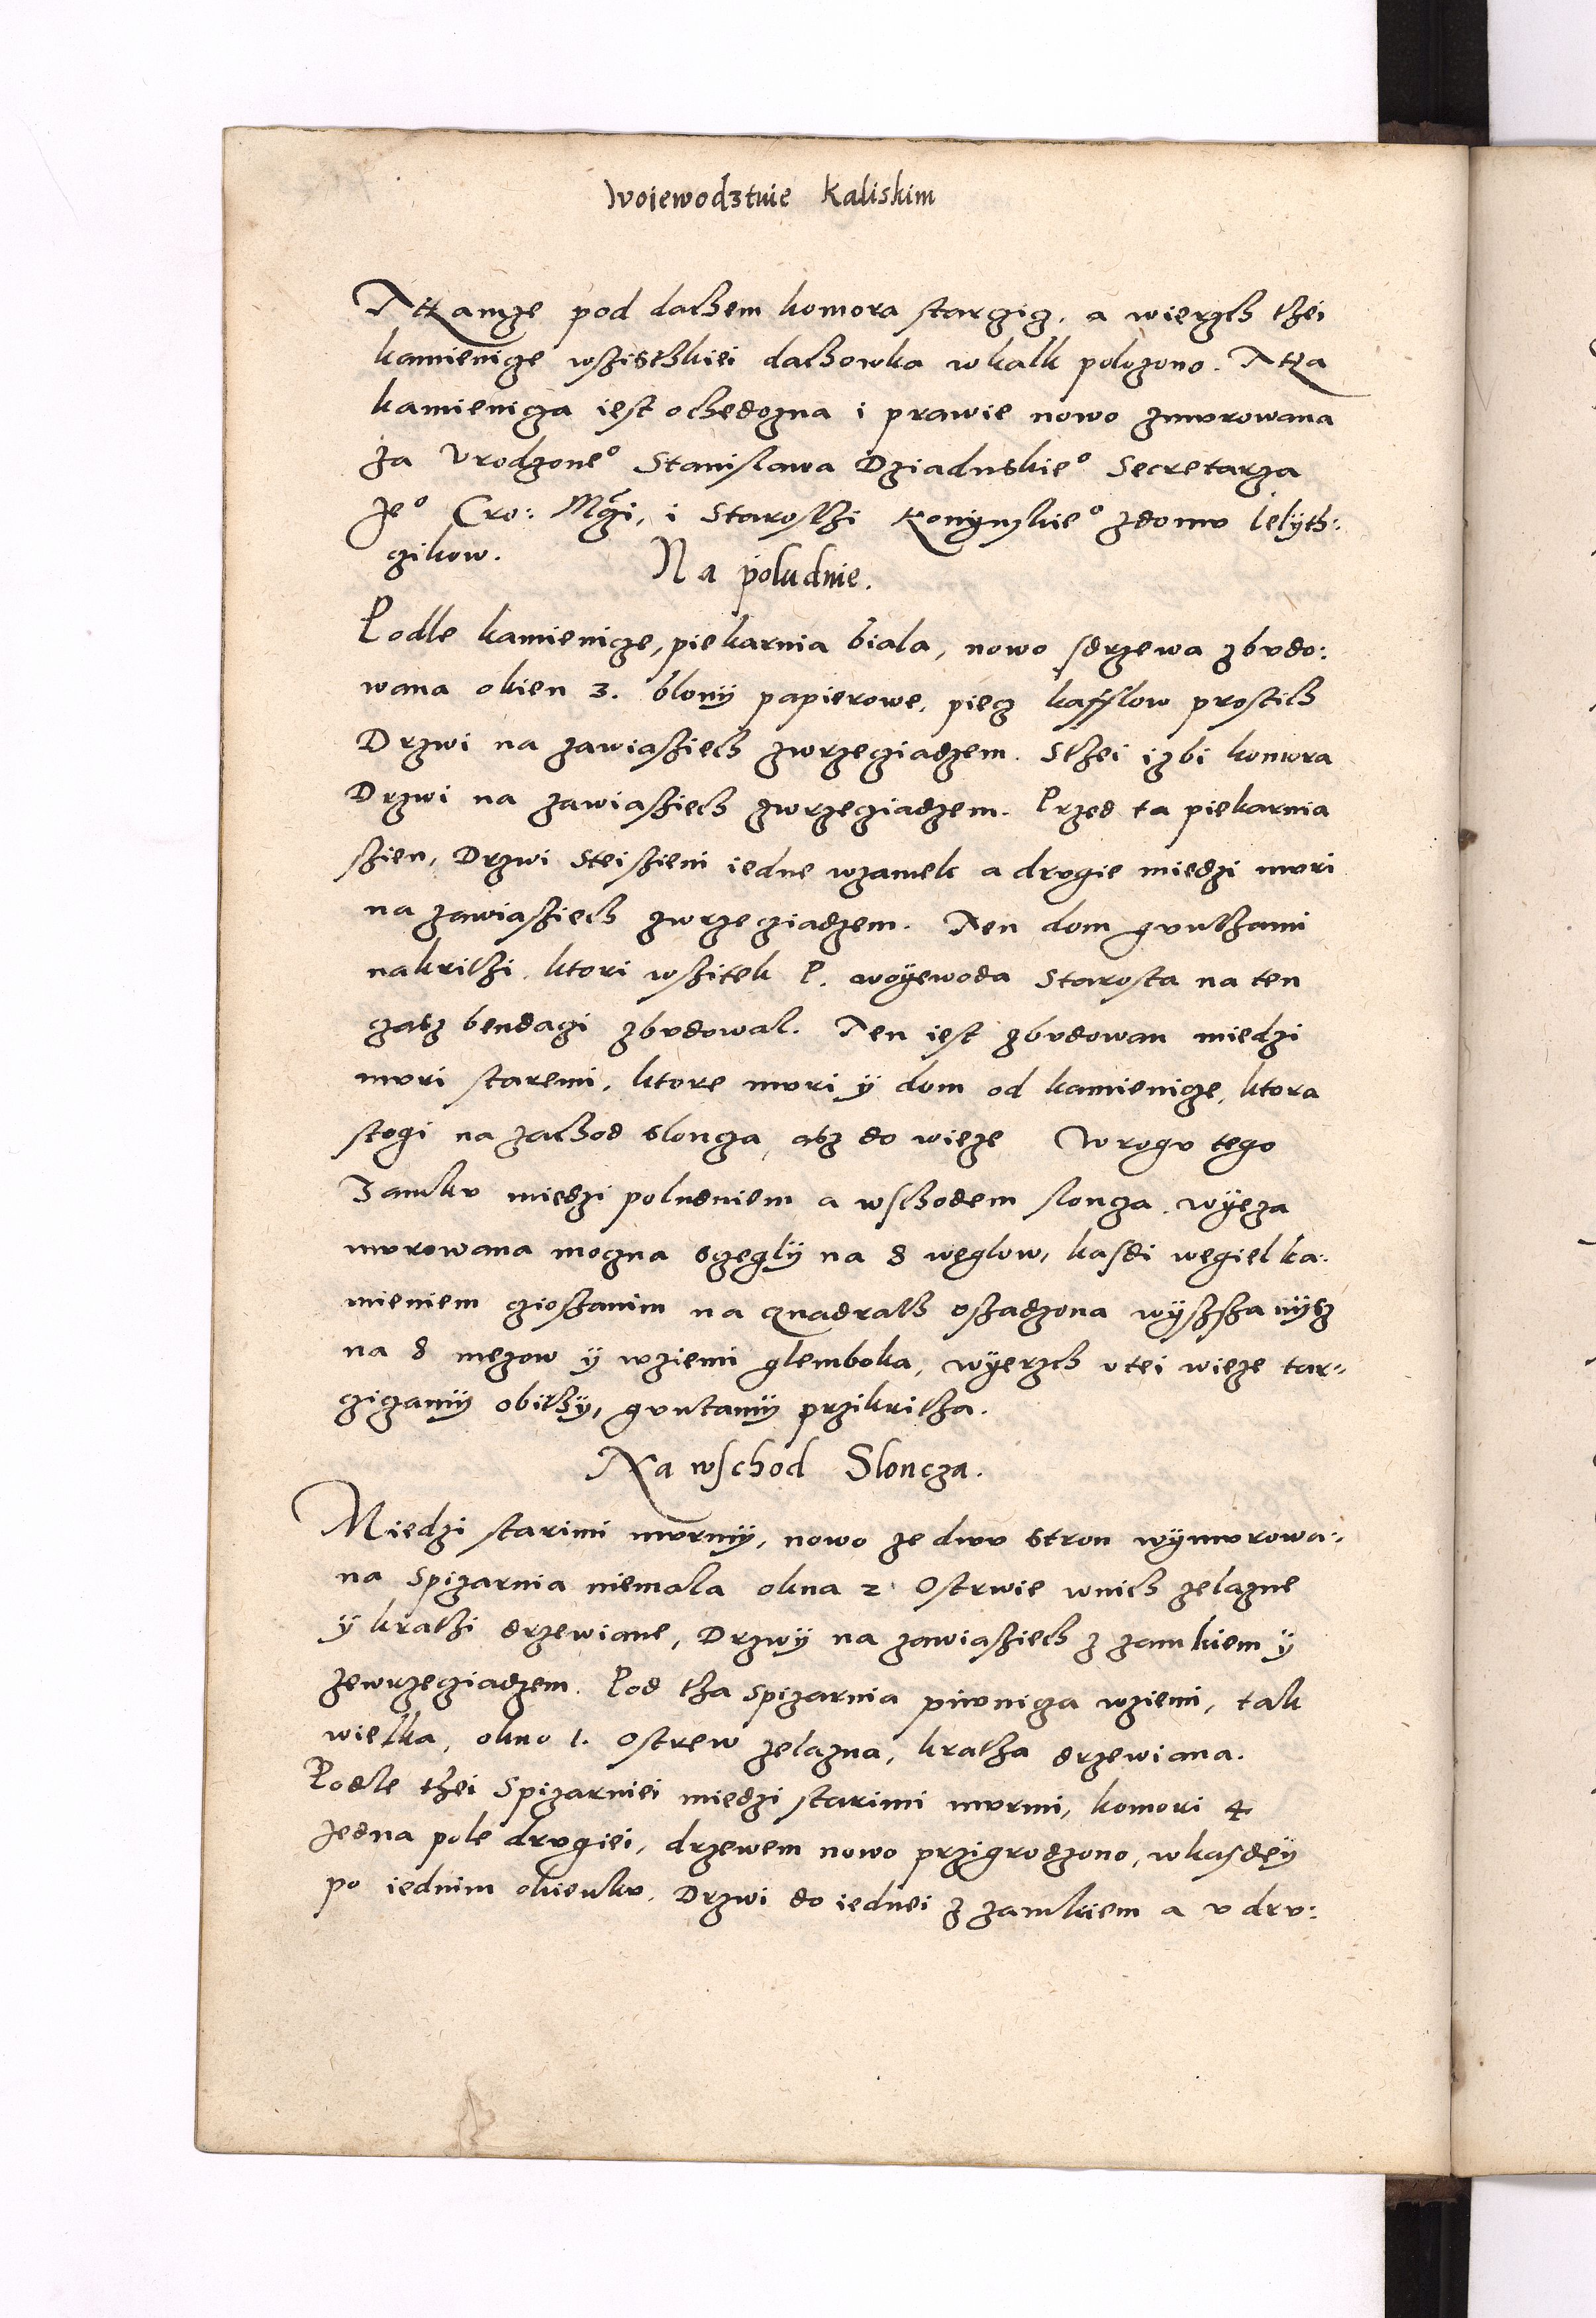 Woiewodztwie Kaliskim
Thamze pod dachem komora starczicz, a wierzch thei
kamienicze wszisthkiei dachowka w kalk polozono. A tha
kamienicza iest ochedozna i prawie nowo zmvrowana
za Vrodzone° Stanislawa Dziaduskie° Secretarza
Je° Cro: Mczi, i Starosthi Konÿnskie° zdomv Ielÿth:
czikow.
Na poludnie.
Podle kamienicze, piekarnia biala, nowo sdrzewa zbvdo:
wana okien 3. blonÿ papierowe, piecz kafflow prostich
Drzwi na zawiasziech zwrzecziadzem. Sthei izbi komora
Drzwi na zawiasziech zwrzecziadzem. Przed ta piekarnia
szien, Drzwi Stei szieni iedne wzamek a drvgie miedzi mvri
na zawiasziech zwrzecziadzem. Ten dom gvnthami
nakrithi, ktori wszitek P. woÿewoda Starosta na ten
czasz bendaczi zbvdowal. Ten iest zbvdowan miedzi
mvri staremi, ktore mvri ÿ dom od kamienicze, ktora
stogi na zachod sloncza, asz do wieze W rogv tego
Zamkv miedzi poludniem a wschodem sloncza, wÿeza
mvrowana mozna sczeglÿ na 8 weglow, kasdi wegiel ka:
mieniem czioszanim na quadrath oszadzona wÿszsza nÿsz
na 8 mezow ÿ wziemi glemboka, wÿerzch v tei wieze tar-
cziczamÿ obithÿ, gvntamÿ przikritha.
Na wschod Sloncza.
Miedzi starimi mvrmÿ, nowo ze dwv stron wÿmvrowa:
na Spizarnia niemala okna 2 Ostrwie wnich zelazne
ÿ krathi drzewiane, Drzwÿ na zawiasziech z zamkiem ÿ
zewrzecziadzem. Pod tha spizarnia piwnicza wziemi, tak
wielka, okno 1. Ostrew zelazna, kratha drzewiana.
Podle thei Spizarniei miedzi starimi mvrmi, komori 4
Jedna pole drvgiei, drzewem nowo przigrodzono, wkasdeÿ
po iednim okienkv. Drzwi do iednei z zamkiem a v drv: